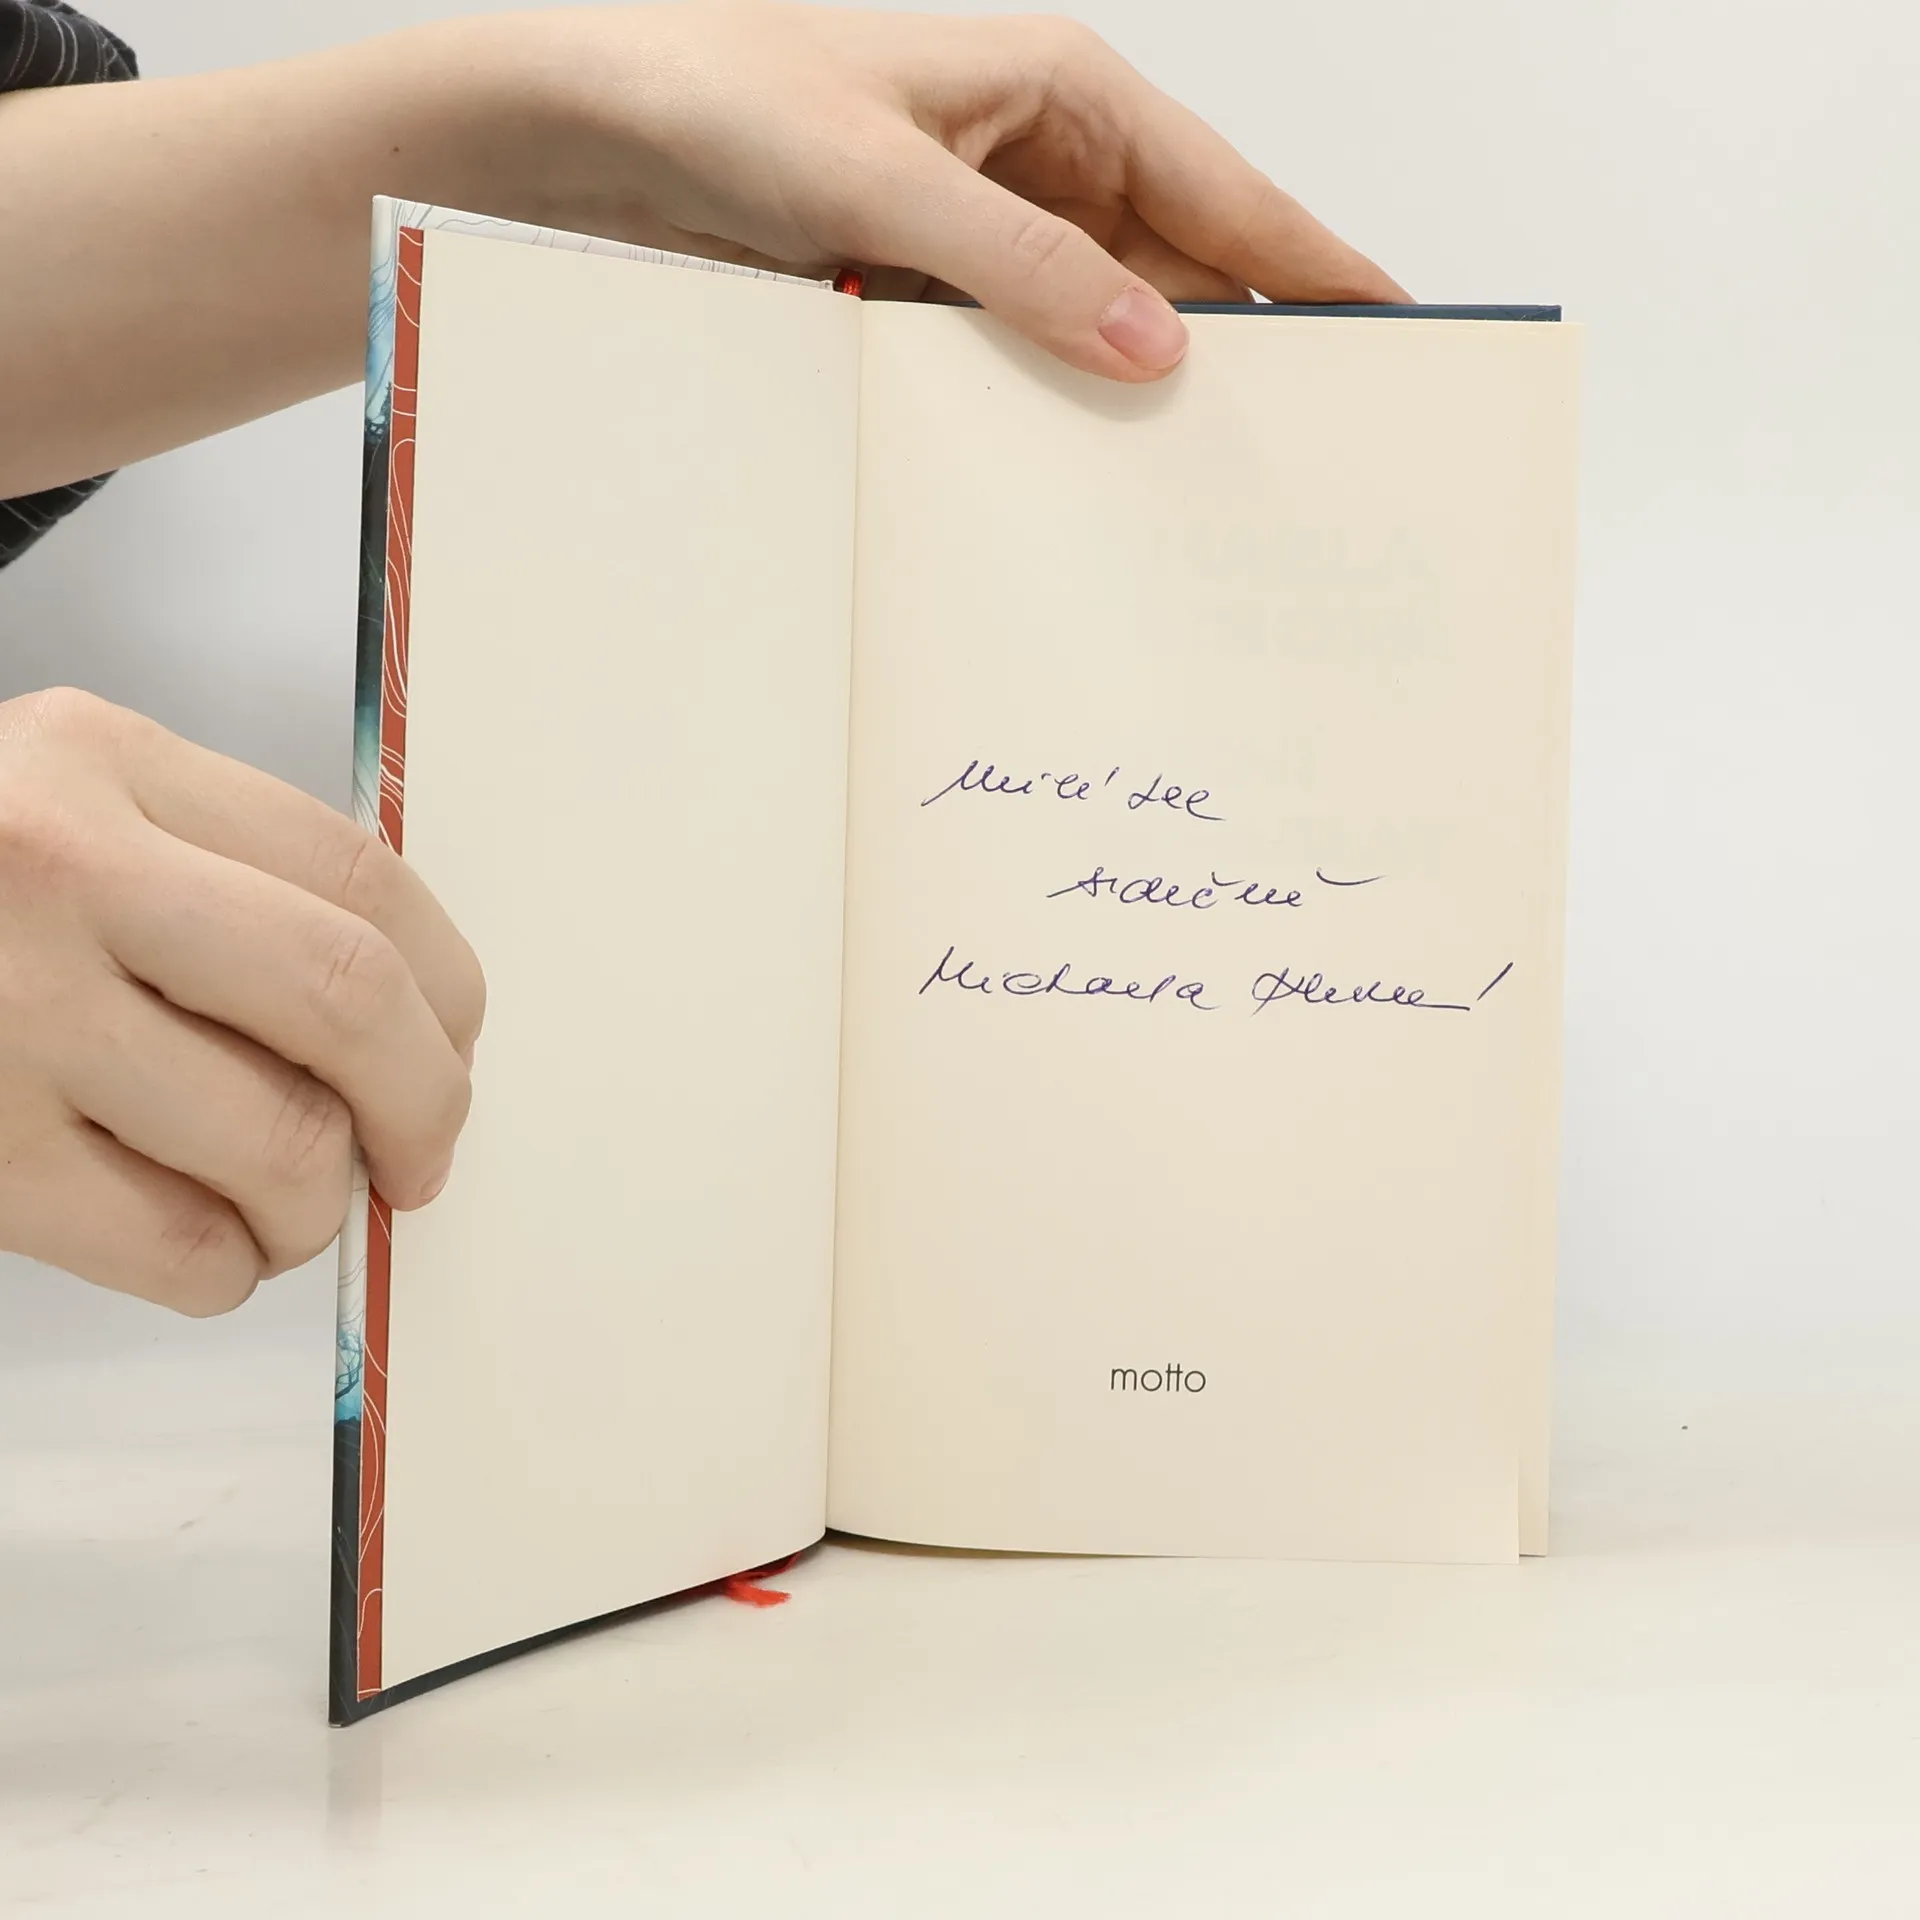 Milé Lee
srdečně
Michaela
motto